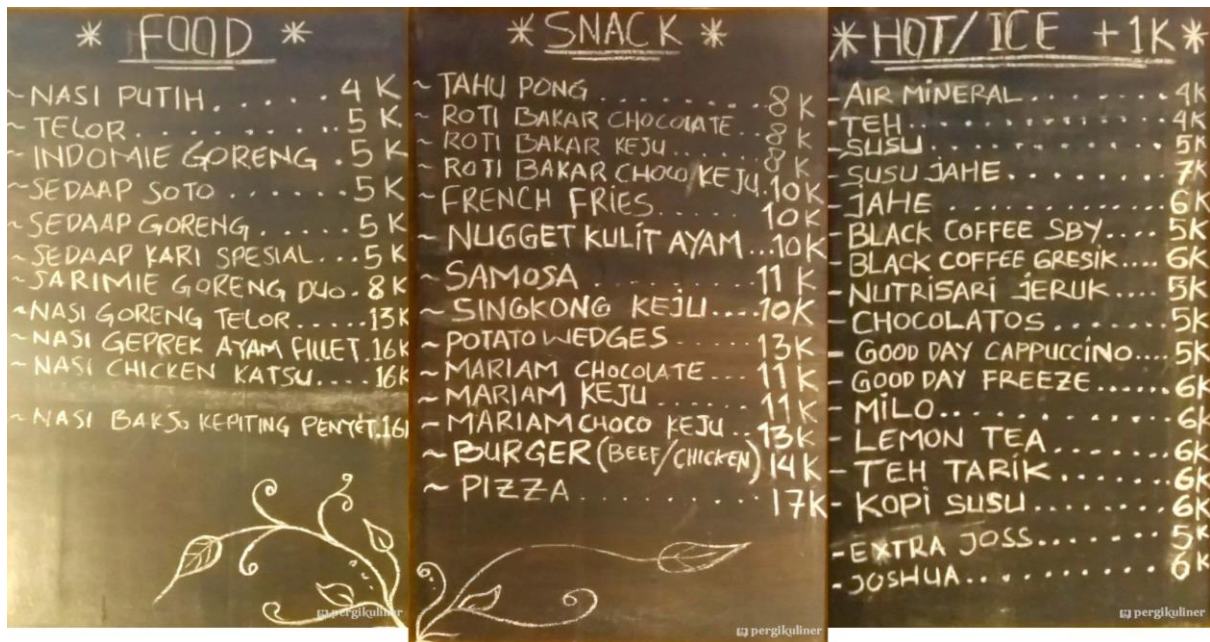 * FOOD *
~ NASI PUTIH...... 4 K
~ TELOR........... 5 K
~ INDOMIE GORENG . 5 K
~ SEDAAP SOTO ...... 5 K
~ SEDAAP GORENG..... 5 K
~ SEDAAP KARI SPESIAL... 5 K
~ SARIMIE GORENG DUO. 8K
~ NASI GORENG TELOR..... 13K
~ NASI GEPREK AYAM FILLET. 16K
~ NASI CHICKEN KATSU.... 16K
~ NASI BAKSO KEPITING PENYET.16K
pergikuliner
* SNACK *
~ TAHU PONG ........ 8 K
~ ROTI BAKAR CHOCOLATE.. 8 K
~ ROTI BAKAR KEJU..... 8 K
~ ROTI BAKAR CHOCO/KEJU.10K
~ FRENCH FRIES...... 10K
~ NUGGET KULIT AYAM...10K
~ SAMOSA ........ 11 K
~ SINGKONG KEJU....10K
~ POTATO WEDGES ..... 13K
~ MARIAM CHOCOLATE... 11K
~ MARIAM KEJU ...... 11K
~ MARIAM CHOCO KEJU ..13K
~ BURGER (BEEF/CHICKEN) 14K
~ PIZZA.......... 17K
pergikuliner
* HOT/ICE +1K *
- AIR MINERAL....... 4K
- TEH............ 4K
- SUSU........... 5K
- SUSU JAHE ....... 7K
- JAHE .......... 6K
- BLACK COFFEE SBY.... 5K
- BLACK COFFEE GRESIK.... 6K
- NUTRISARI JERUK.... 5K
- CHOCOLATOS....... 5K
- GOOD DAY CAPPUCCINO.... 5K
- GOOD DAY FREEZE...... 6K
- MILO........... 6K
- LEMON TEA....... 6K
- TEH TARIK....... 6K
- KOPI SUSU....... 6K
- EXTRA JOSS....... 5K
- JOSHUA.......... 6K
pergikuliner